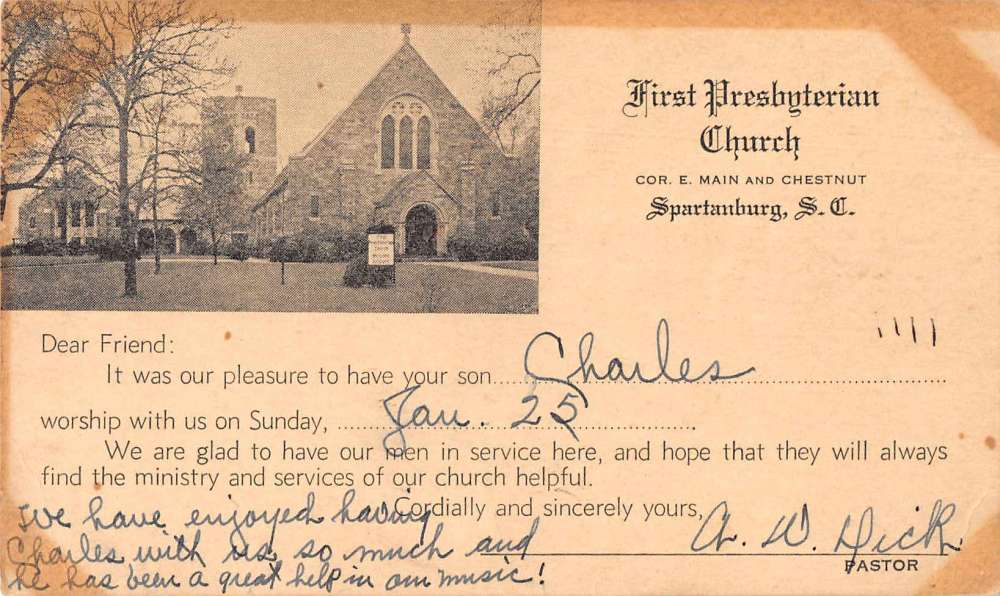 First Presbyterian
Church
COR. E. MAIN AND CHESTNUT
Spartanburg, S. C.
Dear Friend:
It was our pleasure to have your son Charles
worship with us on Sunday, Jan. 25
We are glad to have our men in service here, and hope that they will always
find the ministry and services of our church helpful.
Cordially and sincerely yours,
We have enjoyed having
Charles with us so much and
he has been a great help in our music!
W. Dick
PASTOR